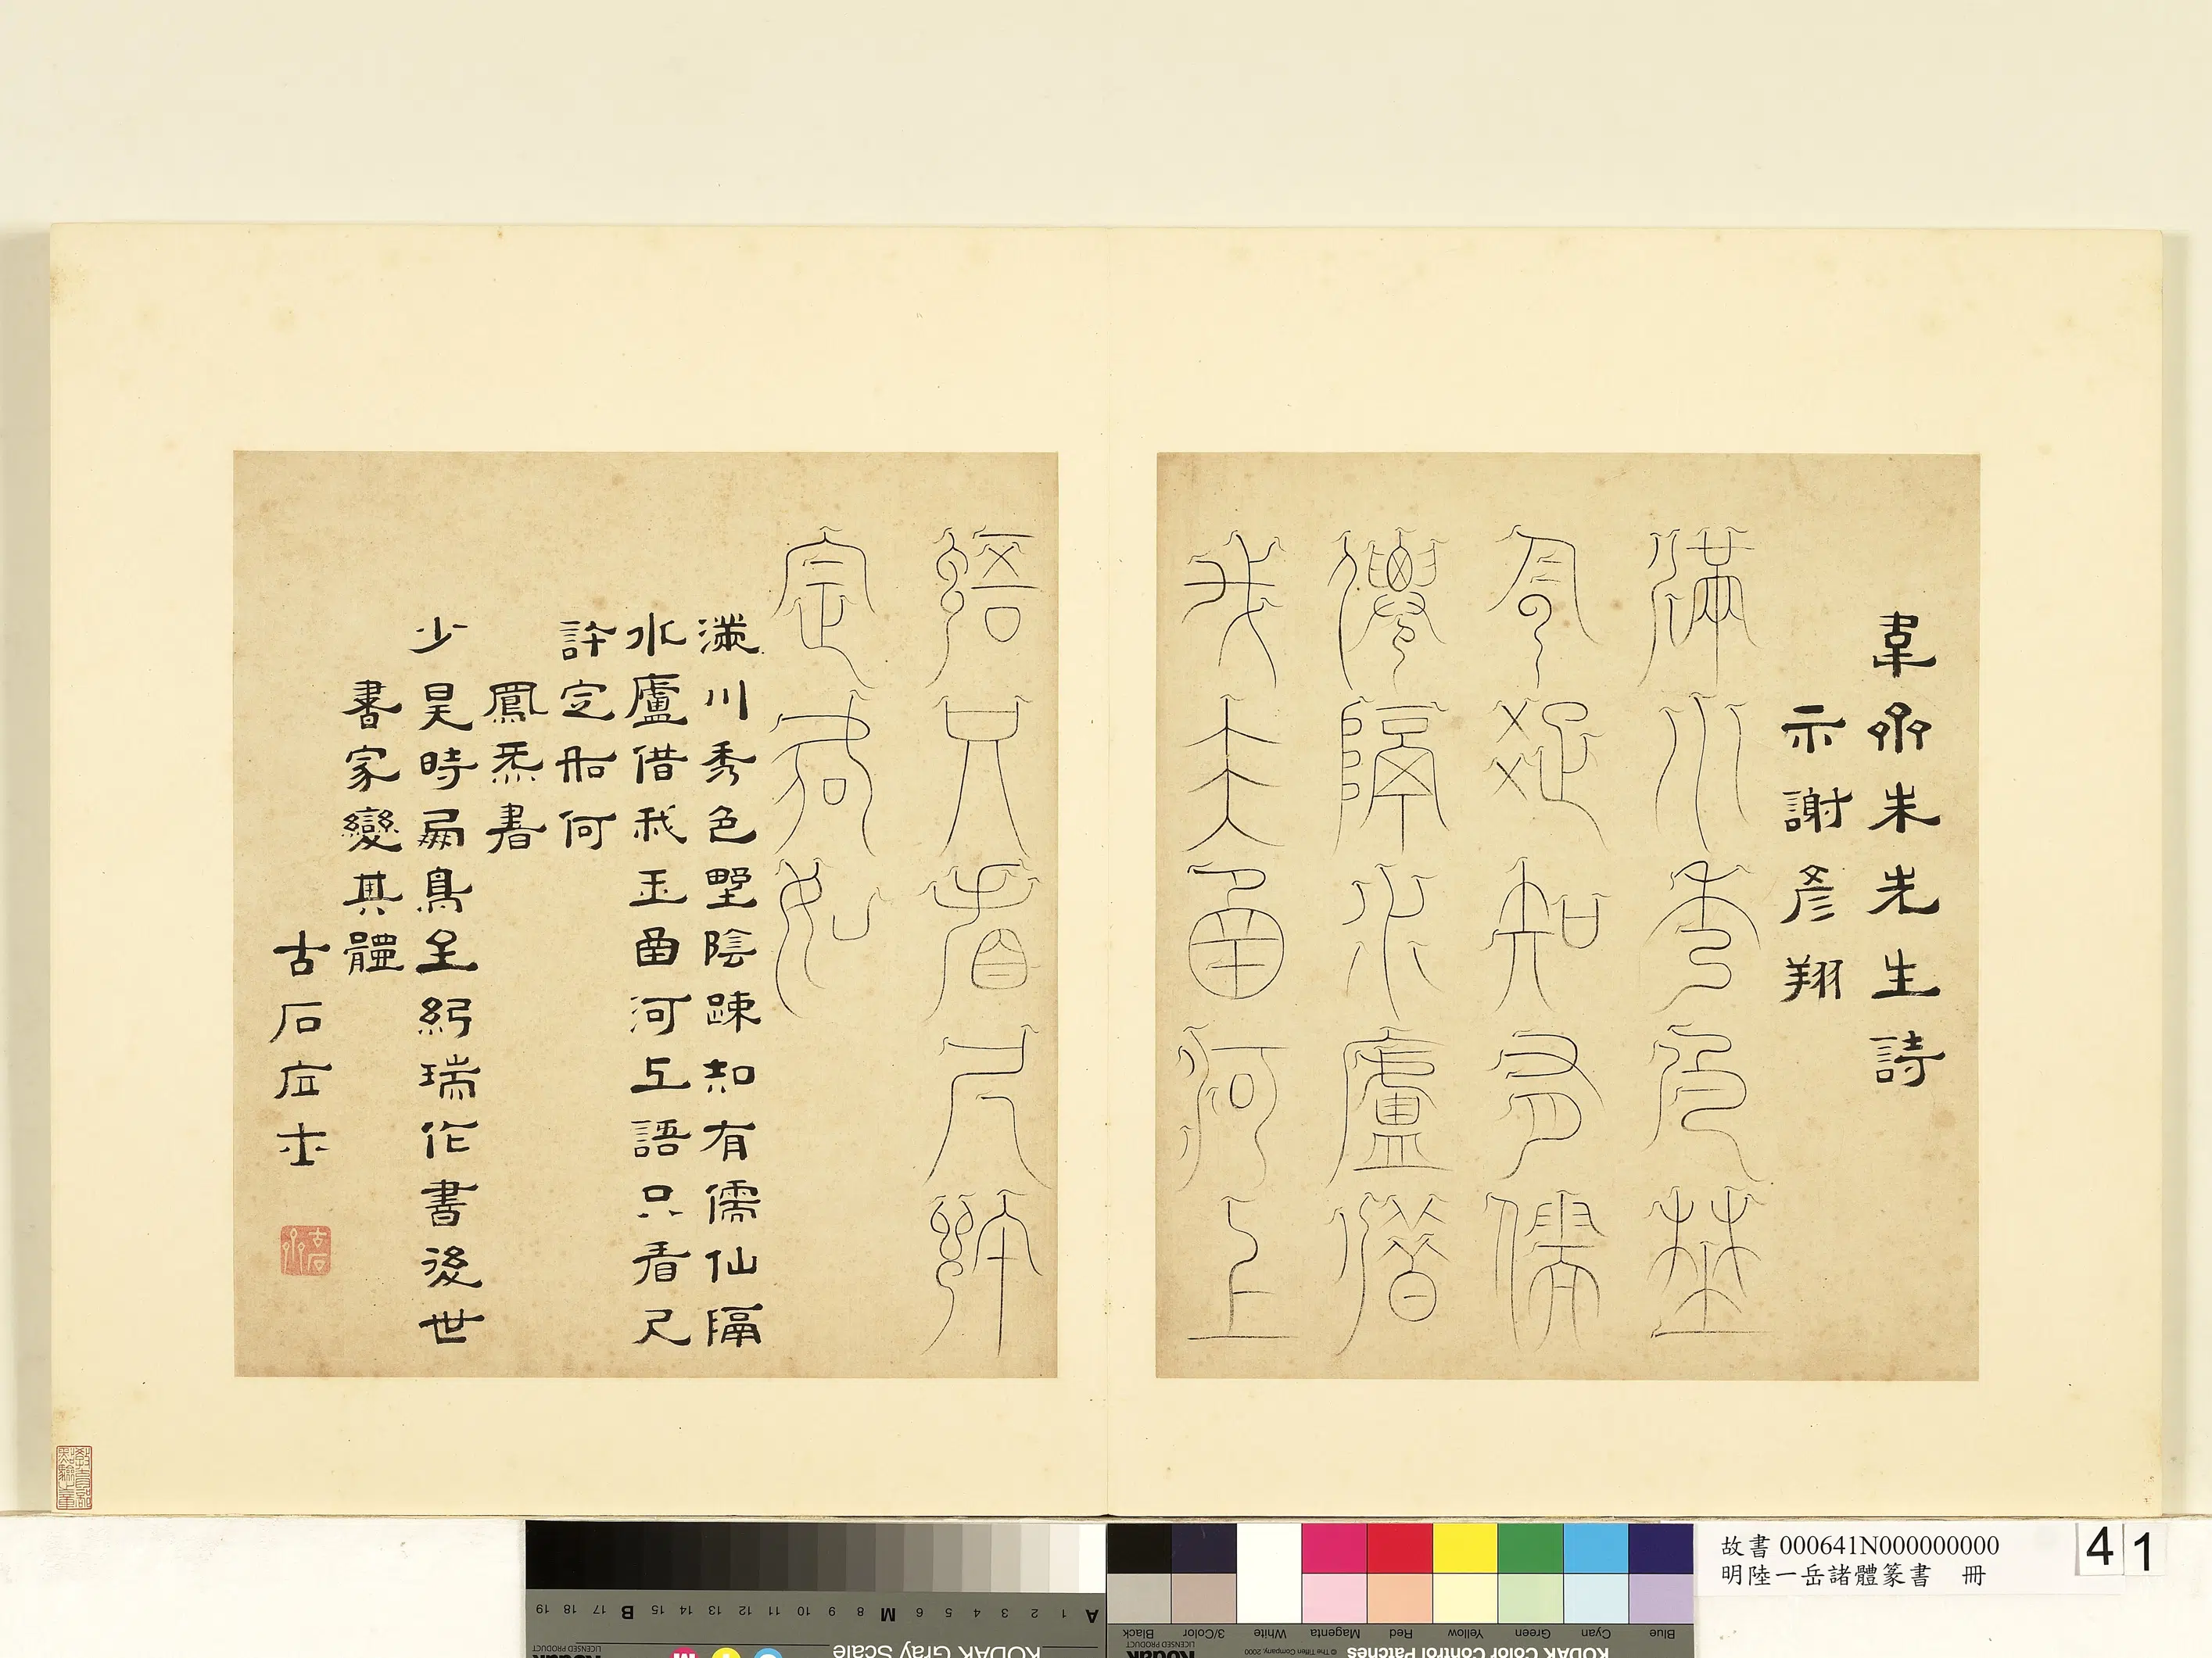 韋亝朱先生詩
示謝彥翔
滿川秀色埜
侌疎知有儒
僊隔水廬借
我玉卣河上
語只看尺許
定
如
滿川秀色墅陰踈知有儒仙隔
水廬借我玉卣河上語只看尺
許定船何
鳳炁書
少昊時鳳鳥至紀瑞作書後世
書家變其體
古石居士
古石
故書 000641N000000000
明陸一岳諸體篆書 冊
4 1
KODAK Gray Scale
A 1 2 3 4 5 6 M 8 9 10 11 12 13 14 15 B 17 18 19
KODAK Color Control Patches
Blue Cyan Green Yellow Red Magenta White 3/Color Black